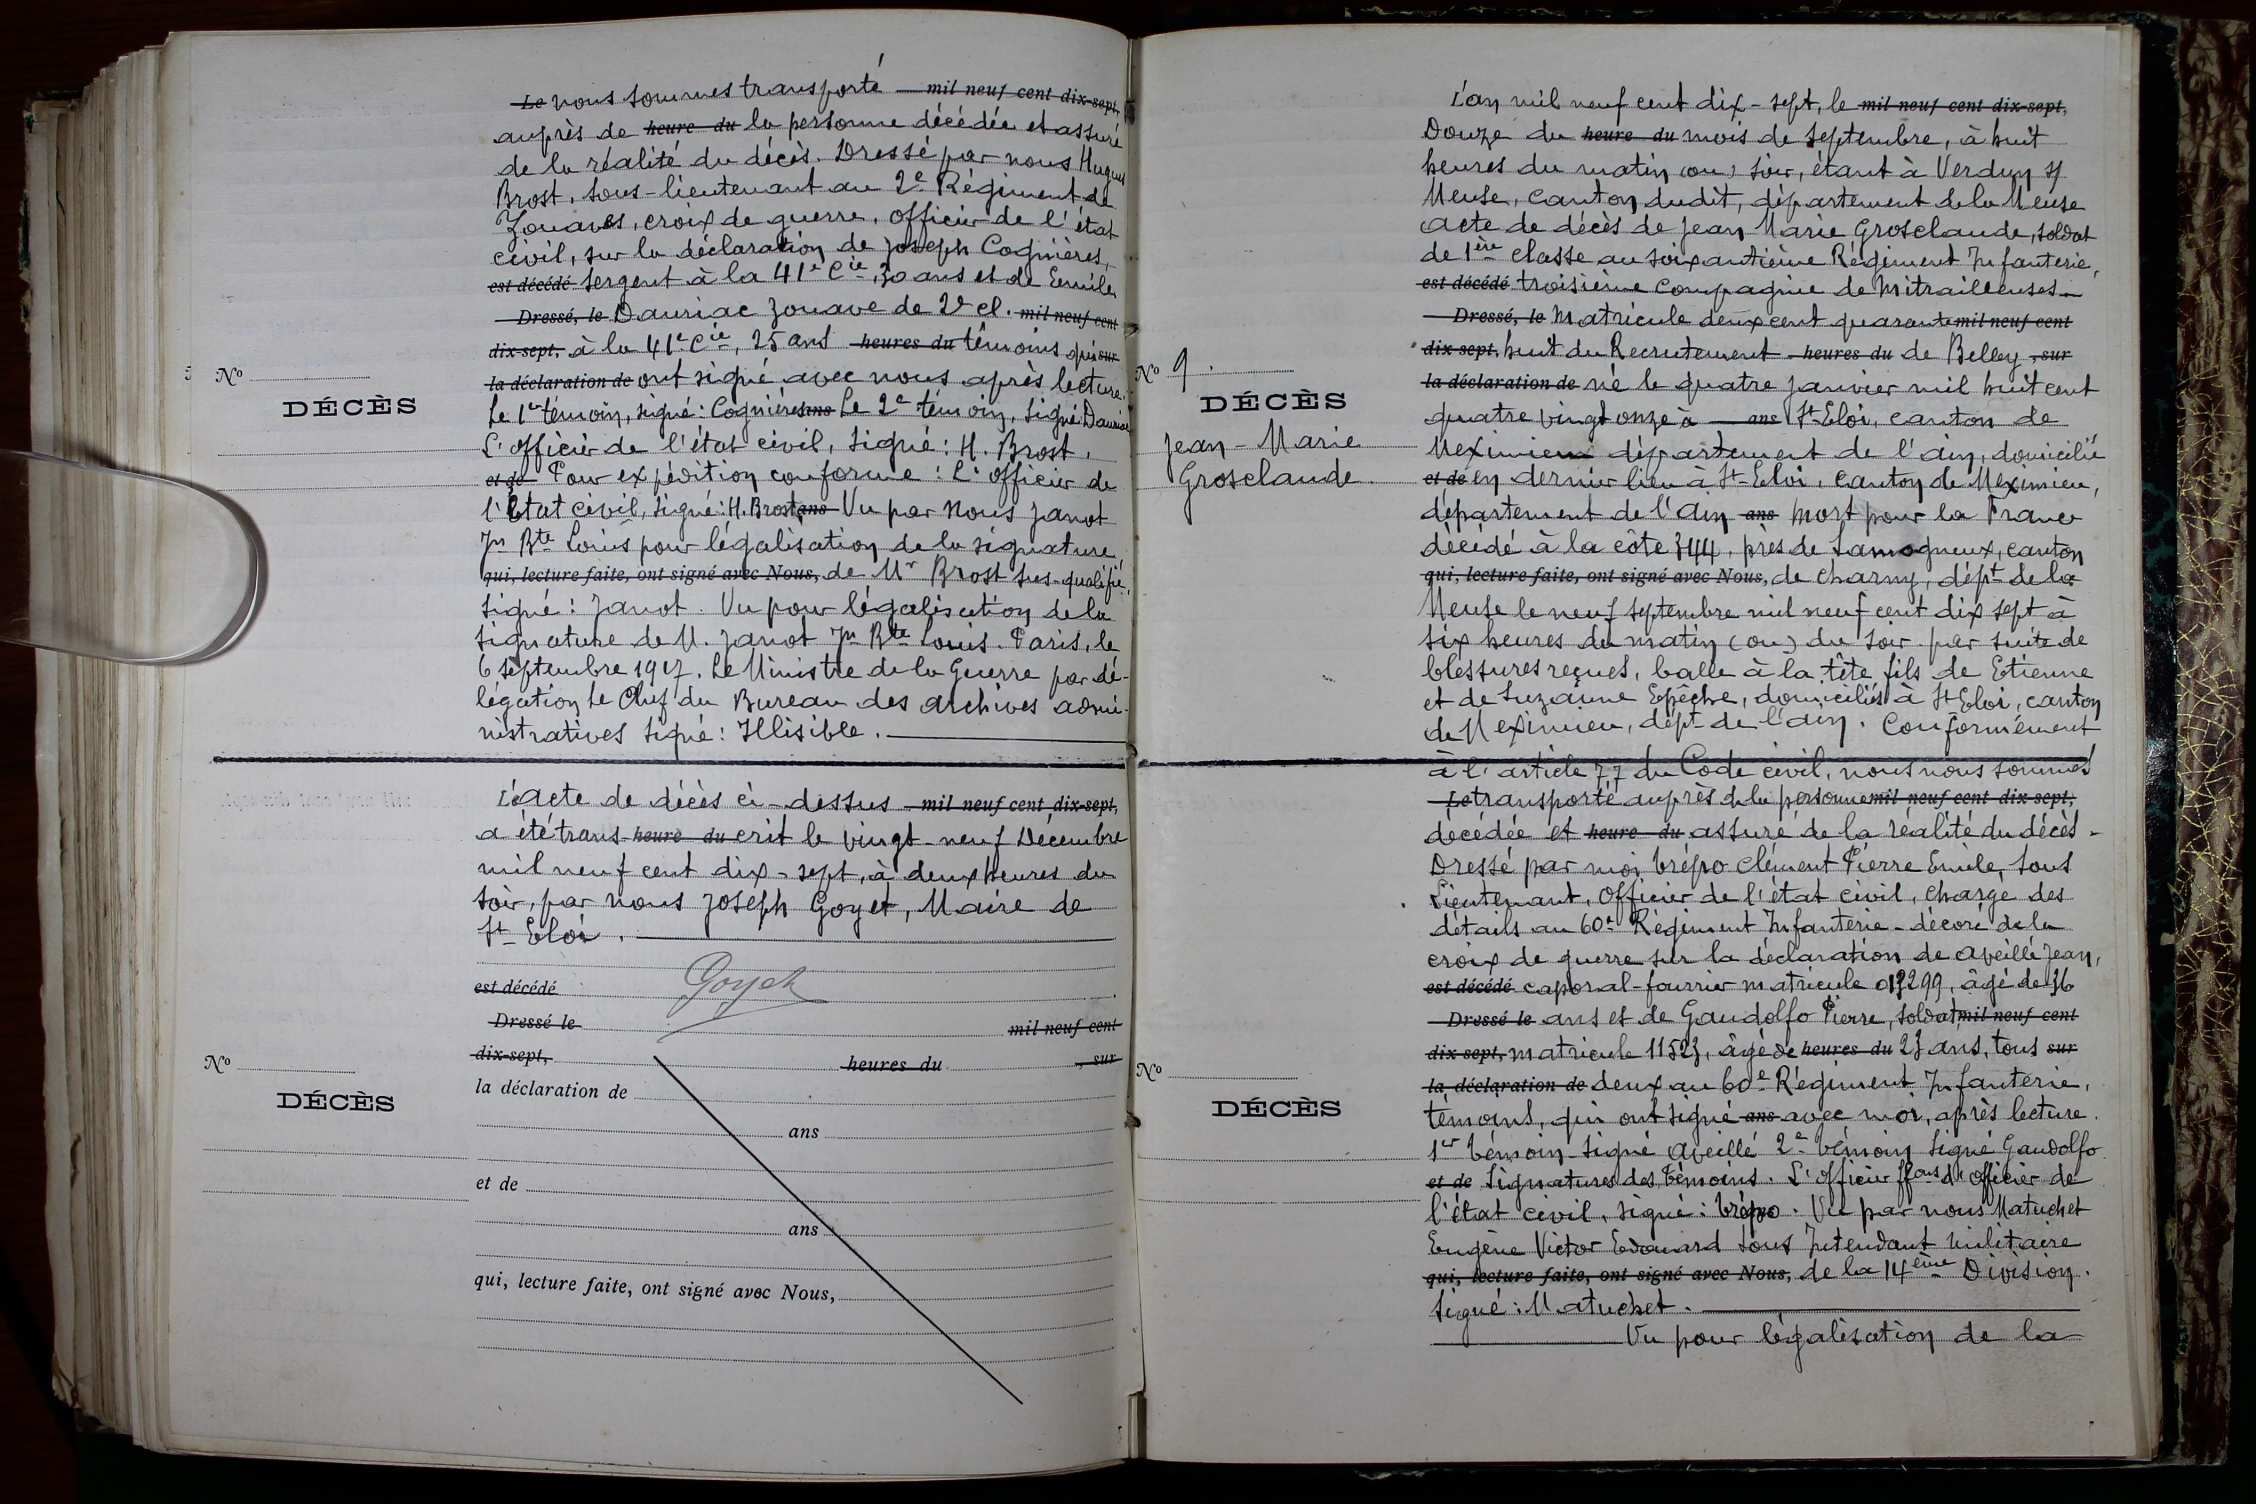 Le nous sommes transporté mil neuf cent dix-sept,
auprès de heure du la personne décédée et assuré
de la réalité du décès. Dressé par nous Hugues
Brost, sous-lieutenant au 2e Régiment de
Zouaves, croix de guerre, officier de l'état
civil, sur la déclaration de Joseph Cognières,
est décédé sergent à la 41e Cie, 30 ans et de Emile
Dressé, le Dauriac Zouave de 2e cl. mil neuf cent
dix-sept, à la 41e Cie, 25 ans heures du témoins qui sur
la déclaration de ont signé avec nous après lecture.
Le 1er témoin, signé: Cognières ans Le 2e témoin, signé Dauriac
L'officier de l'état civil, signé: H. Brost.
et de Pour expédition conforme: L'officier de
l'Etat civil, signé: H. Brost ans Vu par Nous Janot
Jn Bte Louis pour légalisation de la signature
qui, lecture faite, ont signé avec Nous, de Mr Brost sus-qualifié.
signé: Janot. Vu pour légalisation de la
signature de M. Janot Jn Bte Louis. Paris, le
6 septembre 1917. Le Ministre de la Guerre par dé-
légation Le Chef du Bureau des archives admi-
nistratives signé: Illisible.
No
DÉCÈS
L'acte de décès ci-dessus mil neuf cent dix-sept,
a été trans- heure du crit le vingt-neuf Décembre
mil neuf cent dix-sept, à deux heures du
soir, par nous Joseph Goyet, Maire de
St Eloi.
Goyet
est décédé
Dressé le mil neuf cent
dix-sept, heures du , sur
la déclaration de
ans
et de
ans
qui, lecture faite, ont signé avec Nous,
No
DÉCÈS
L'an mil neuf cent dix-sept, le mil neuf cent dix-sept,
Douze du heure du mois de Septembre, à huit
heures du matin (ou) soir, étant à Verdun s/
Meuse, canton dudit, département de la Meuse
acte de décès de Jean Marie Grosclaude, soldat
de 1ère classe au soixantième Régiment Infanterie,
est décédé troisième compagnie de Mitrailleuses
Dressé, le Matricule deux cent quarante mil neuf cent
dix-sept, huit du Recrutement heures du de Belley , sur
la déclaration de né le quatre Janvier mil huit cent
quatre vingt onze à ans St Eloi, canton de
Meximieu département de l'ain, domicilié
et de en dernier lieu à St-Eloi, canton de Meximieu,
département de l'ain ans Mort pour la France
décédé à la côte 344, près de Samogneux, canton
qui, lecture faite, ont signé avec Nous, de Charny, dépt de la
Meuse le neuf septembre mil neuf cent dix sept à
six heures du matin (ou) du soir par suite de
blessures reçues, balle à la tête, fils de Etienne
et de Suzanne Epêche, domiciliés à St Eloi, canton
de Meximieu, dépt de l'ain. Conformément
à l'article 77 du Code civil, nous nous sommes
Le transporté auprès de la personne mil neuf cent dix-sept,
décédée et heure du assuré de la réalité du décès.
Dressé par moi Trépo Clément Pierre Emile, sous
Lieutenant, Officier de l'état civil, chargé des
détails au 60e Régiment Infanterie décoré de la
croix de guerre sur la déclaration de Aveillé Jean,
est décédé caporal-fourrier matricule 013299, âgé de 36
Dressé le ans et de Gandolfo Pierre, soldat, mil neuf cent
dix-sept, matricule 11523, âgé de heures du 23 ans, tous sur
la déclaration de deux au 60e Régiment Infanterie,
témoins, qui ont signé ans avec moi, après lecture.
1er témoin signé Aveillé 2e témoin signé Gandolfo
et de Signatures des témoins. L'officier ffons d'officier de
l'état civil, signé: Trépo. Vu par nous Matuchet
Eugène Victor Edouard Sous Intendant Militaire
qui, lecture faite, ont signé avec Nous, de la 14ème Division.
signé: Matuchet.
Vu pour légalisation de la
No 9.
DÉCÈS
Jean-Marie
Grosclaude
No
DÉCÈS